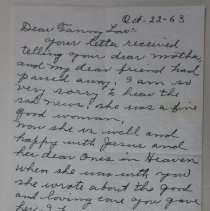 Oct. 22-63
Dear Fanny Lou:-
Your letter received
telling your dear mother,
and my dear friend had
passed away. I am so
very sorry to hear the
sad news, she was a fine
good woman,
now she is well and
happy with Jesus and
her dear ones in Heaven
when she was with you
she wrote about the good
and loving care you gave
her